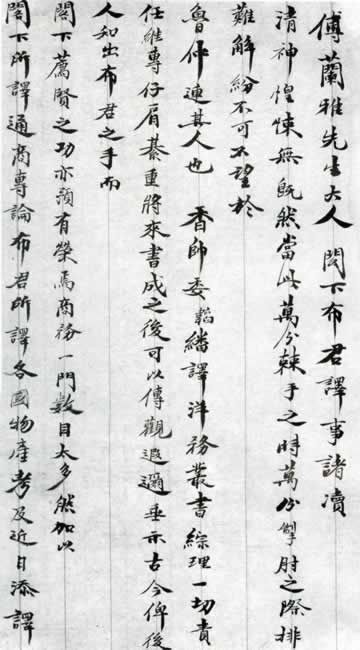 傅蘭雅先生大人閣下布君譯事諸瀆
清神惶悚無既然當此萬分棘手之時萬分掣肘之際排
難解紛不可不望於
魯仲連其人也香帥委韜繙譯洋務叢書綜理一切責
任維專仔肩綦重將來書成之後可以傳觀遐邇垂示古今俾後
人知出布君之手而
閣下薦賢之功亦須有榮焉商務一門數目太多然加以
閣下所譯通商專論布君所譯各國物產考及近日添譯